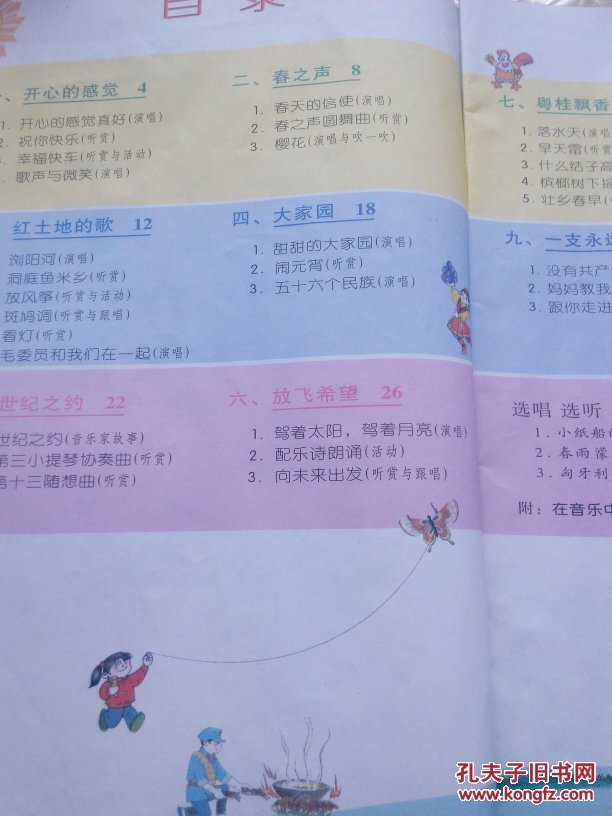 目录
一、开心的感觉 4
1. 开心的感觉真好(演唱)
2. 祝你快乐(听赏)
3. 幸福快车(听赏与活动)
4. 歌声与微笑(演唱)
二、春之声 8
1. 春天的信使(演唱)
2. 春之声圆舞曲(听赏)
3. 樱花(演唱与吹一吹)
红土地的歌 12
浏阳河(演唱)
洞庭鱼米乡(听赏)
放风筝(听赏与活动)
斑鸠调(听赏与跟唱)
看灯(听赏)
毛委员和我们在一起(演唱)
四、大家园 18
1. 甜甜的大家园(演唱)
2. 闹元宵(听赏)
3. 五十六个民族(演唱)
世纪之约 22
世纪之约(音乐家故事)
第三小提琴协奏曲(听赏)
第十三随想曲(听赏)
六、放飞希望 26
1. 驾着太阳，驾着月亮(演唱)
2. 配乐诗朗诵(活动)
3. 向未来出发(听赏与跟唱)
七、粤桂飘香
1. 落水天(演唱
2. 早天雷(听赏
3. 什么结子高
4. 槟榔树下摇
5. 壮乡春早(
九、一支永远
1. 没有共产
2. 妈妈教我
3. 跟你走进
选唱 选听
1. 小纸船的
2. 春雨蒙
3. 匈牙利
附: 在音乐中
孔夫子旧书网
www.kongfz.com